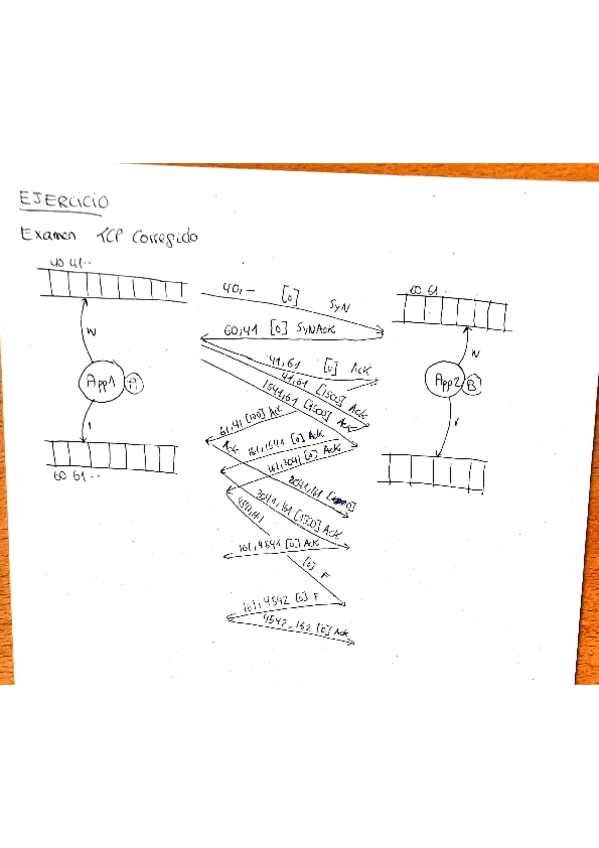 EJERCICIO
Examen TCP Corregido
40 41..
40,- [0] SYN
60 61..
60,41 [0] SYNAck
W
W
41,61 [0] Ack
App1 A
41,61 [1500] Ack
App2 B
1541,61 [1500] Ack
61,41 [100] Ack
r
r
Ack
161,1541 [0] Ack
161,3041 [0] Ack
60 61..
3041,161
3041,161 [1500] Ack
161,4541 [0] Ack
[0] F
161,4542 [0] F
4542,162 [0] Ack